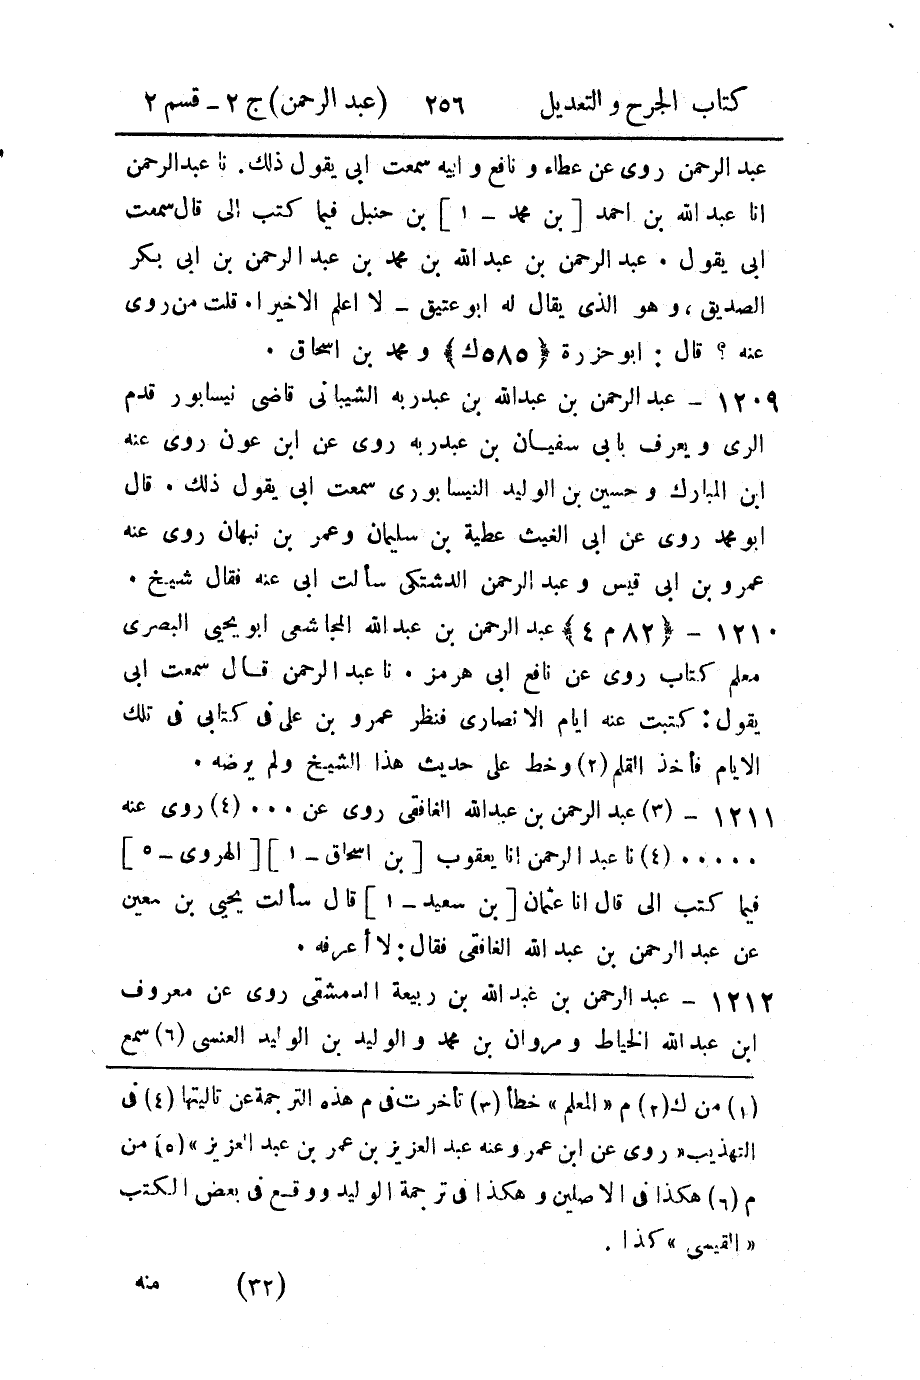 كتاب الجرح والتعديل ٢٥٦ (عبد الرحمن) ج ٢ - قسم ٢
عبد الرحمن روى عن عطاء و نافع و ابيه سمعت ابى يقول ذلك. نا عبدالرحمن
انا عبد الله بن احمد [ بن محمد - ١ ] بن حنبل فيما كتب الى قال سمعت
ابى يقول . عبد الرحمن بن عبد الله بن محمد بن عبد الرحمن بن ابى بكر
الصديق ، و هو الذى يقال له ابو عتيق - لا اعلم الا خيرا . قلت من روى
عنه ؟ قال : ابو حزرة ﴿ ٥٨٥ك ﴾ و محمد بن اسحاق .
١٢٠٩ - عبد الرحمن بن عبدالله بن عبدربه الشيبانى قاضى نيسابور قدم
الرى و يعرف بابى سفيان بن عبدربه روى عن ابن عون روى عنه
ابن المبارك و حسين بن الوليد النيسابورى سمعت ابى يقول ذلك . قال
ابو محمد روى عن ابى الغيث عطية بن سليمان وعمر بن نبهان روى عنه
عمرو بن ابى قيس و عبد الرحمن الدشتكى سألت ابى عنه فقال شيخ .
١٢١٠ - ﴿ ٨٢ م ٤ ﴾ عبد الرحمن بن عبد الله المجاشعى ابو يحيى البصرى
معلم كتاب روى عن نافع ابى هرمز . نا عبد الرحمن قال سمعت ابى
يقول : كتبت عنه ايام الانصارى فنظر عمرو بن على فى كتابى فى تلك
الايام فأخذ القلم (٢) وخط على حديث هذا الشيخ ولم يرضه .
١٢١١ - (٣) عبد الرحمن بن عبدالله الغافقى روى عن ... (٤) روى عنه
..... (٤) نا عبد الرحمن انا يعقوب [ بن اسحاق - ١ ] [ الهروى - ٥ ]
فيما كتب الى قال انا عثمان [ بن سعيد - ١ ] قال سألت يحيى بن معين
عن عبد الرحمن بن عبد الله الغافقى فقال : لا أعرفه .
١٢١٢ - عبد الرحمن بن عبد الله بن ربيعة الدمشقى روى عن معروف
ابن عبد الله الخياط و مروان بن محمد و الوليد بن الوليد العنسى (٦) سمع
(١) من ك (٢) م « المعلم » خطأ (٣) تأخرت فى م هذه الترجمة عن تاليتها (٤) فى
التهذيب « روى عن ابن عمر وعنه عبد العزيز بن عمر بن عبد العزيز » (٥) من
م (٦) هكذا فى الاصلين و هكذا فى ترجمة الوليد ووقع فى بعض الكتب
« القيسى » كذا .
(٣٢) منه